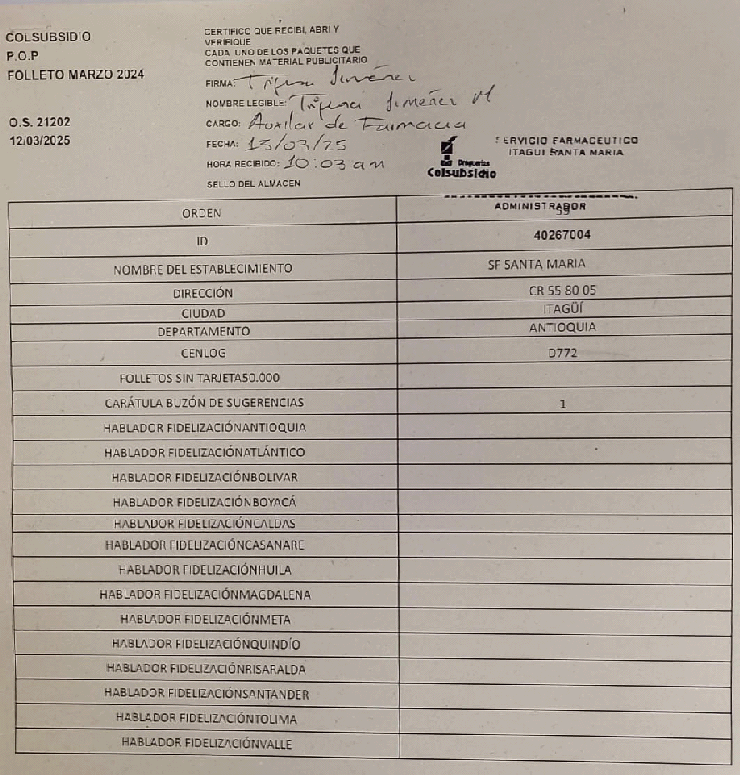 COLSUBSIDIO
P.O.P
FOLLETO MARZO 2024
O.S. 21202
12/03/2025
CERTIFICO QUE RECIBI, ABRI Y
VERIFIQUE
CADA UNO DE LOS PAQUETES QUE
CONTIENEN MATERIAL PUBLICITARIO
FIRMA: Jiménez
NOMBRE LEGIBLE: Jiménez M
CARGO: Auxiliar de Farmacia
FECHA: 13/03/25
HORA RECIBIDO: 10:03 am
SELLO DEL ALMACEN
Droguerías
Colsubsidio
SERVICIO FARMACEUTICO
ITAGUI SANTA MARIA
ADMINISTRADOR
ORDEN 59
ID 40267004
NOMBRE DEL ESTABLECIMIENTO SF SANTA MARIA
DIRECCIÓN CR 55 80 05
CIUDAD ITAGÜÍ
DEPARTAMENTO ANTIOQUIA
CENLOG D772
FOLLETOS SIN TARJETA50.000
CARÁTULA BUZÓN DE SUGERENCIAS 1
HABLADOR FIDELIZACIÓNANTIOQUIA
HABLADOR FIDELIZACIÓNATLÁNTICO
HABLADOR FIDELIZACIÓNBOLIVAR
HABLADOR FIDELIZACIÓNBOYACÁ
HABLADOR FIDELIZACIÓNCALDAS
HABLADOR FIDELIZACIÓNCASANARE
HABLADOR FIDELIZACIÓNHUILA
HABLADOR FIDELIZACIÓNMAGDALENA
HABLADOR FIDELIZACIÓNMETA
HABLADOR FIDELIZACIÓNQUINDÍO
HABLADOR FIDELIZACIÓNRISARALDA
HABLADOR FIDELIZACIÓNSANTANDER
HABLADOR FIDELIZACIÓNTOLIMA
HABLADOR FIDELIZACIÓNVALLE